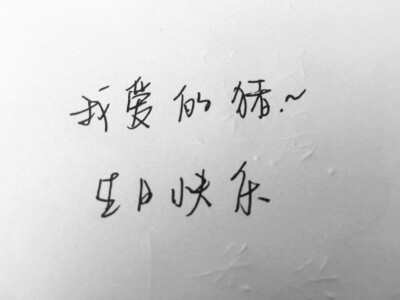 我爱的猪.~
生日快乐